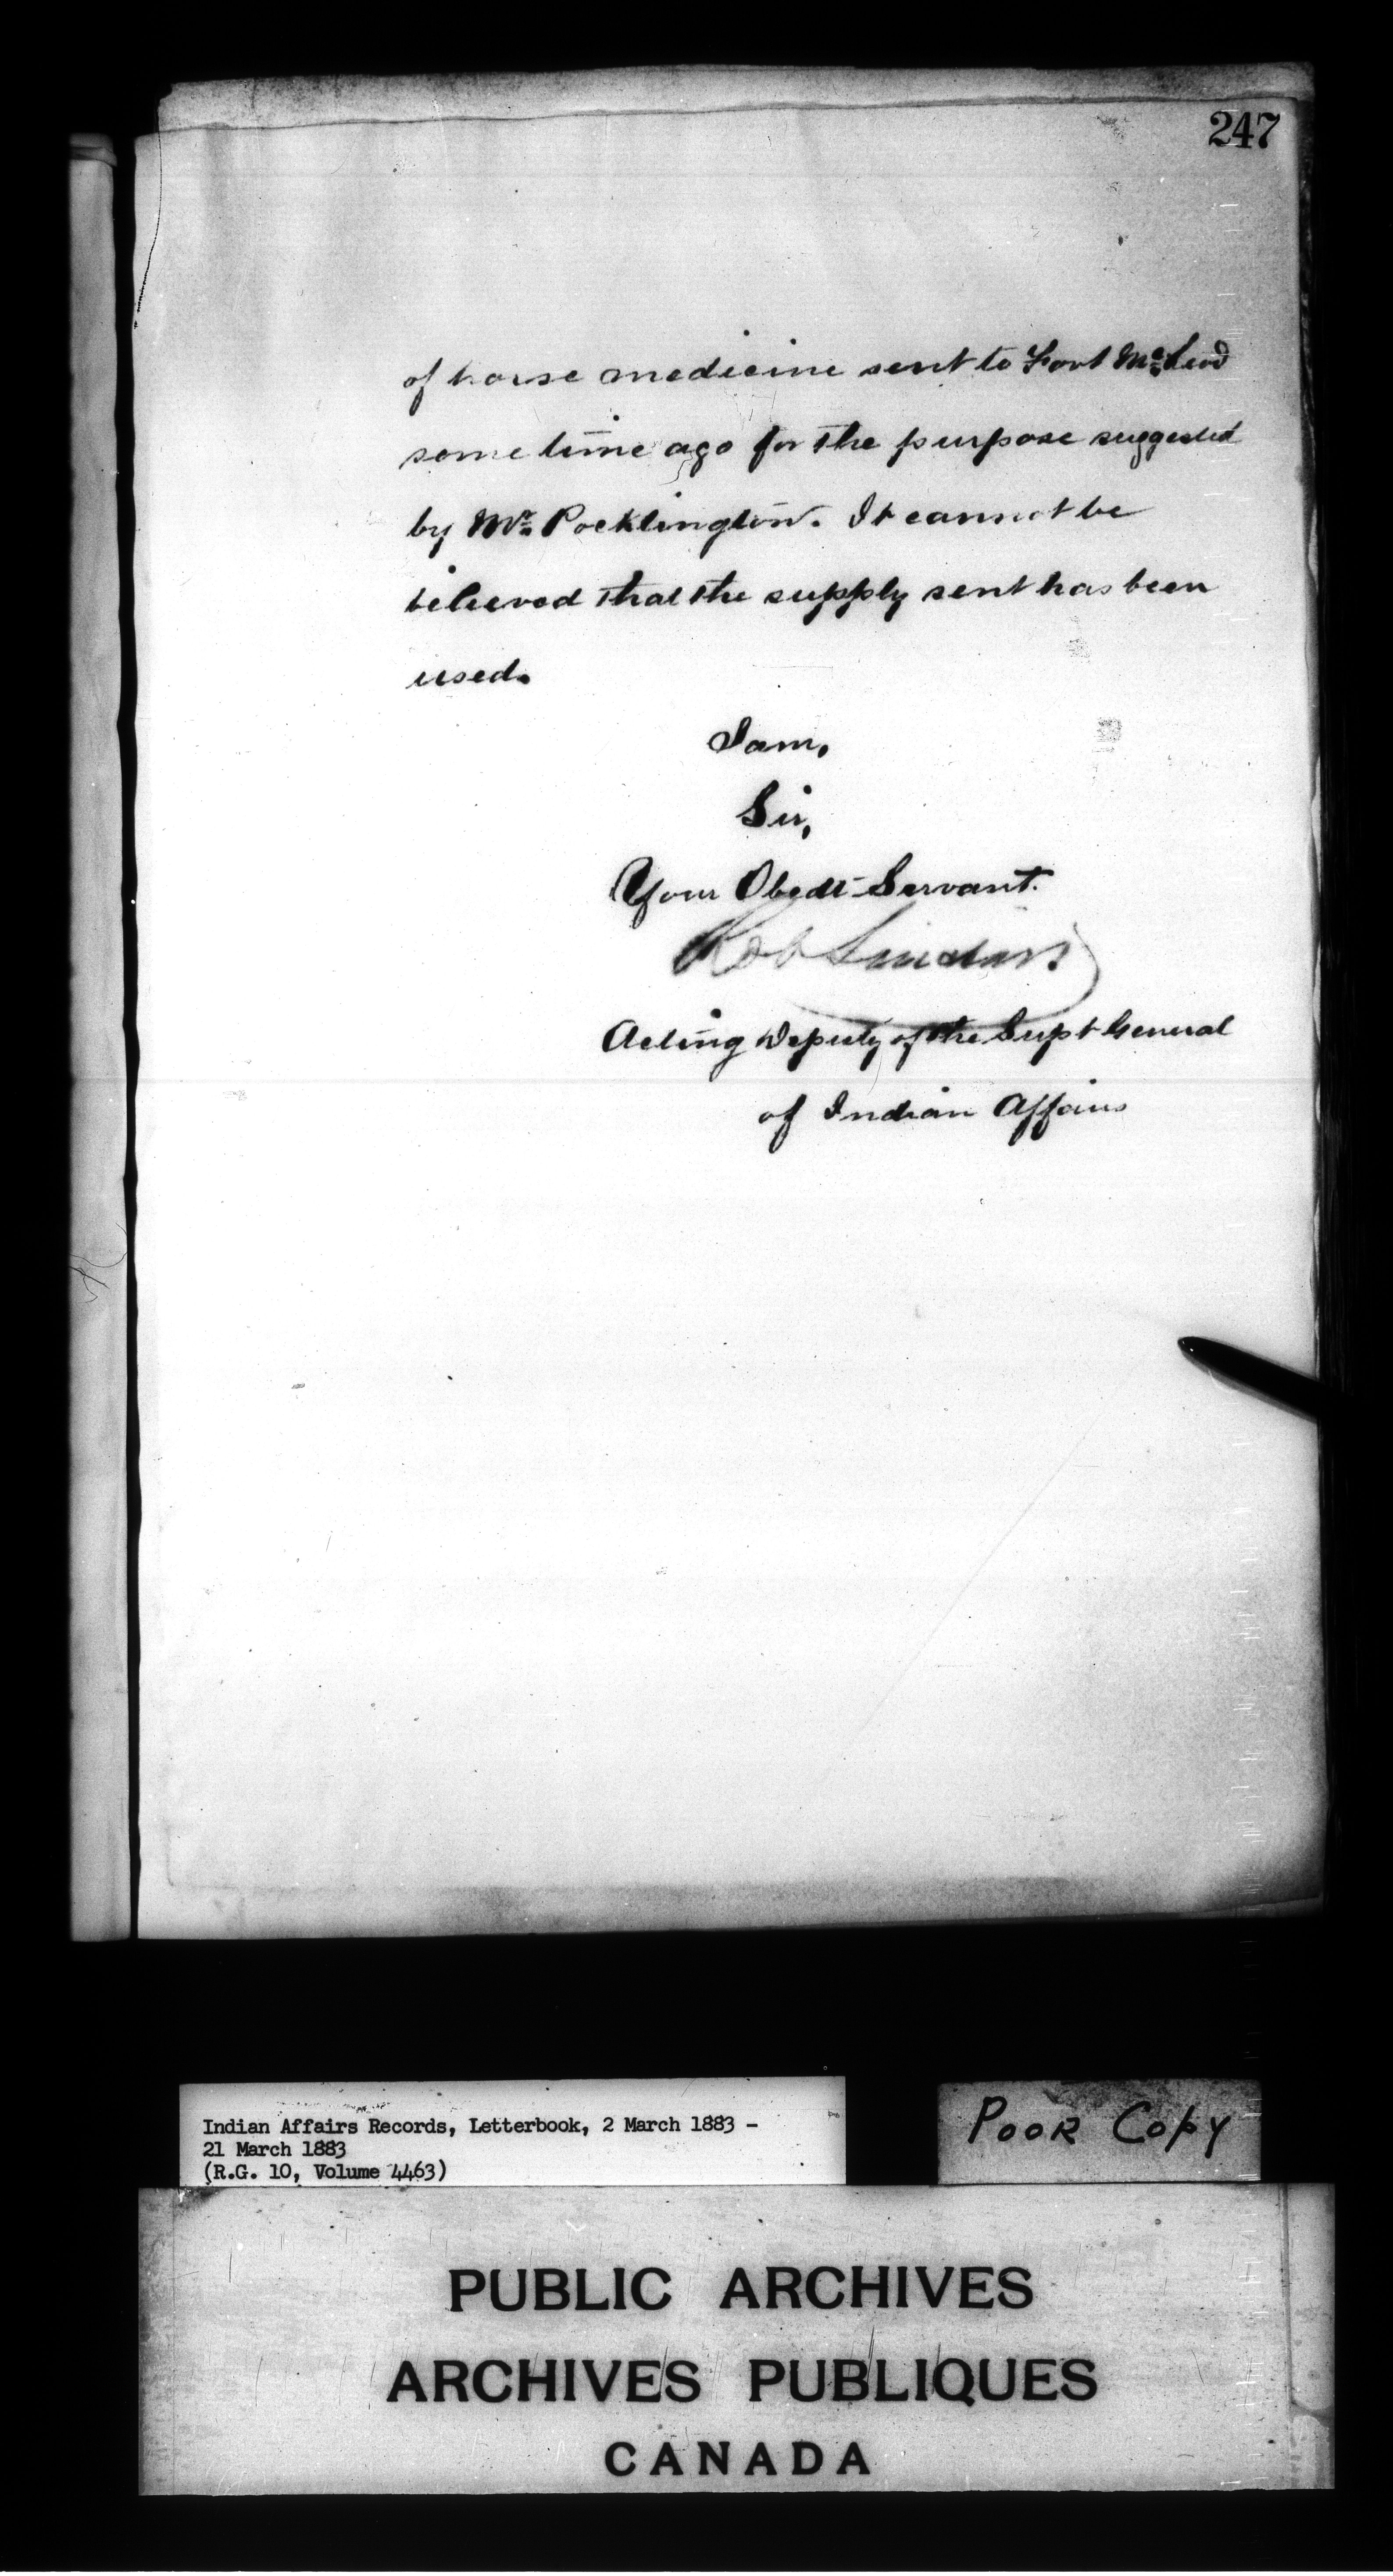 247
of horse medicine sent to Fort McLeod
some time ago for the purpose suggested
by Mr. Pocklington. It cannot be
believed that the supply sent has been
used.
I am,
Sir,
Your Obedt Servant.
Rob Sinclair
Acting Deputy of the Supt General
of Indian Affairs
Indian Affairs Records, Letterbook, 2 March 1883 -
21 March 1883
(R.G. 10, Volume 4463)
POOR COPY
PUBLIC ARCHIVES
ARCHIVES PUBLIQUES
CANADA